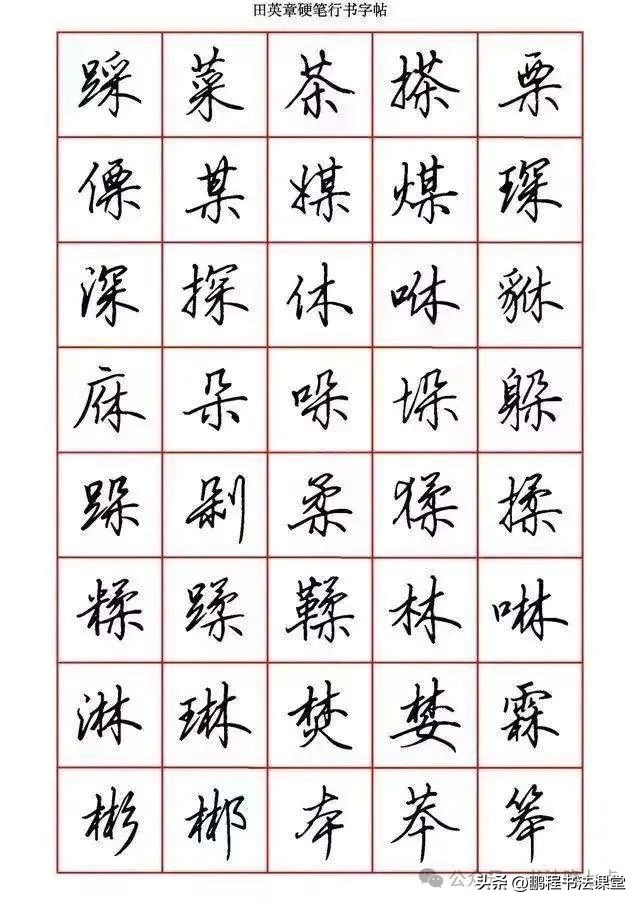 田英章硬笔行书字帖
踩菜茶搽栗
傈某媒煤琛
深探休咻貅
庥朵哚垛躲
跺剁柔猱揉
糅蹂鞣林啉
淋琳焚婪霖
彬郴本苯笨
头条 @鹏程书法课堂